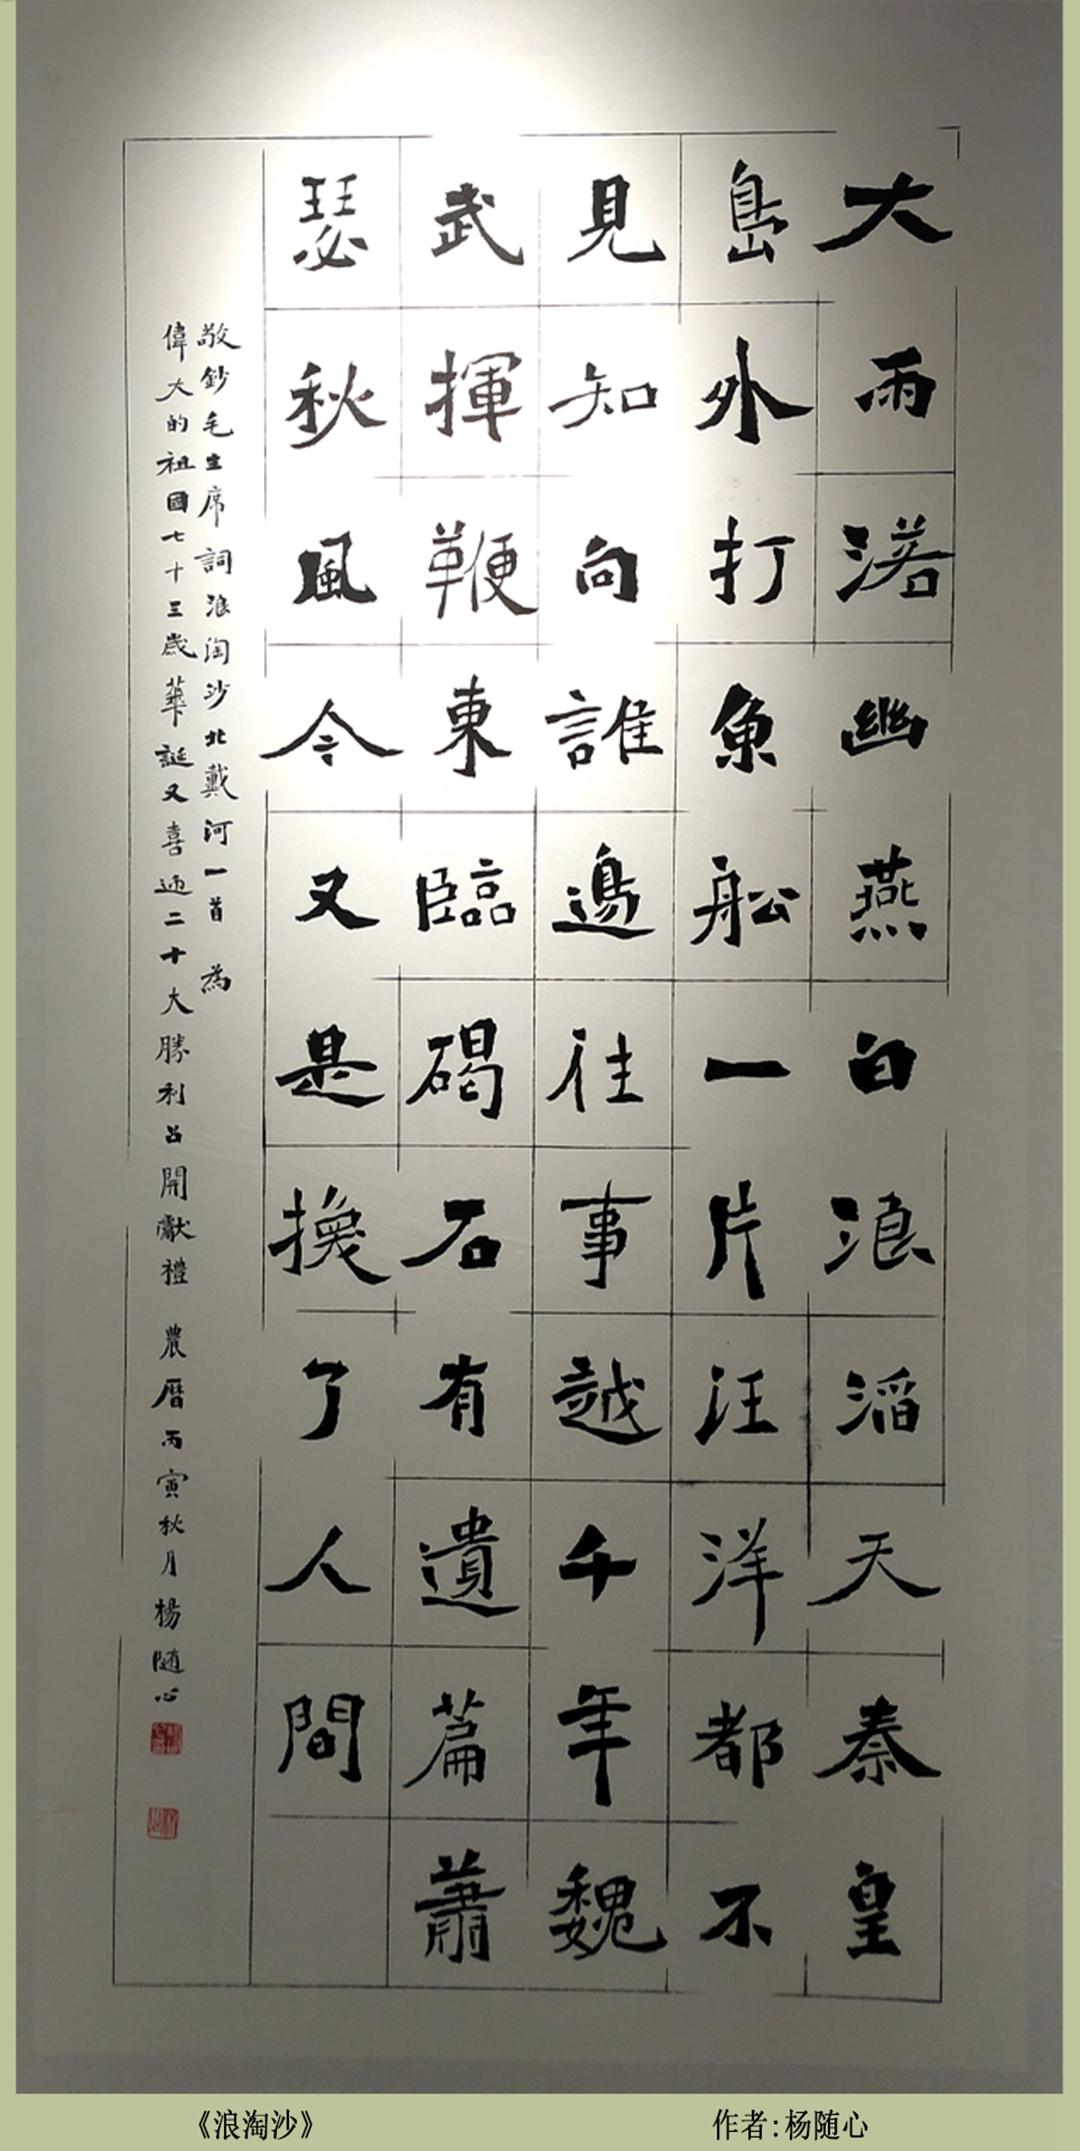 大雨落幽燕白浪滔天秦皇
島外打魚船一片汪洋都不
見知向誰邊往事越千年魏
武揮鞭東臨碣石有遺篇蕭
瑟秋風今又是換了人間
敬鈔毛主席詞浪淘沙北戴河一首 為
偉大的祖國七十三歲華誕又喜迎二十大勝利召開獻禮 農曆丙寅秋月楊随心
《浪淘沙》 作者:杨随心